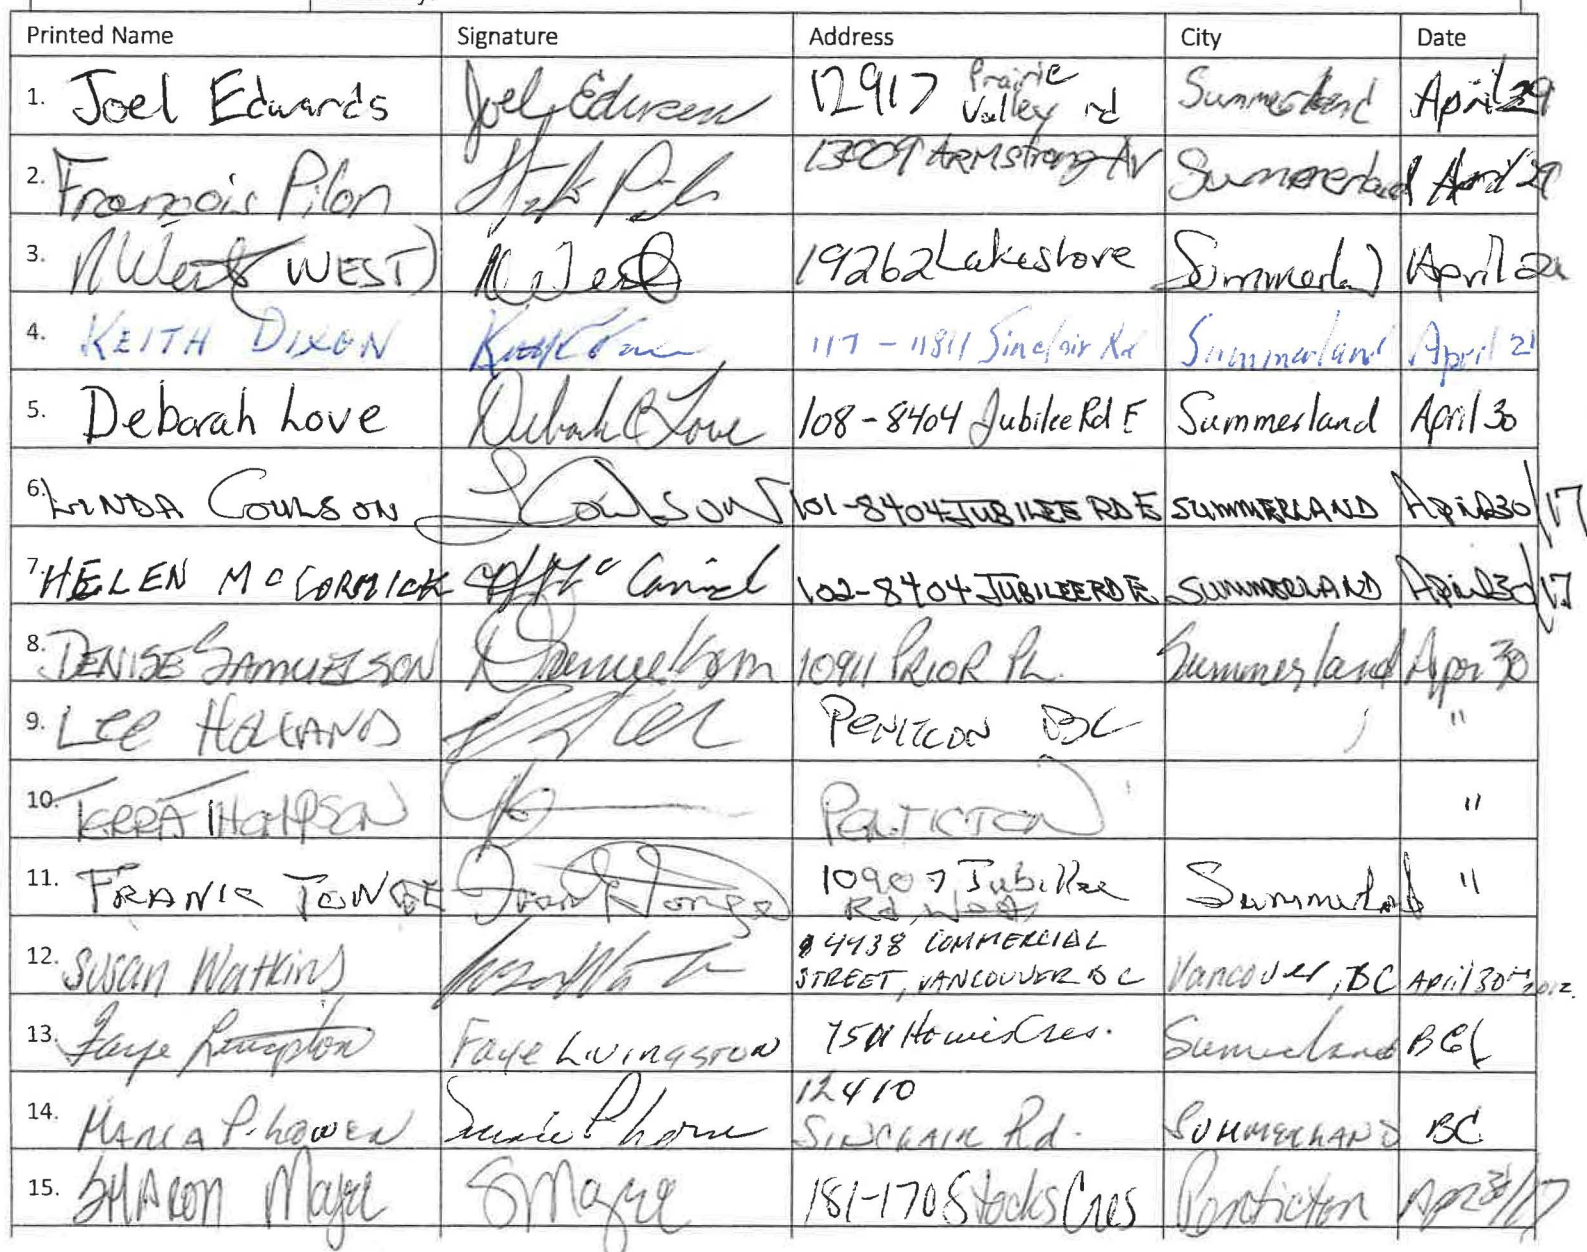 Printed Name Signature Address City Date
1. Joel Edwards Joel Edwards 12917 Prairie Valley rd Summerland April 29
2. François Pilon 13009 ARMstrong Av Summerland April 29
3. N West (WEST) N West 19262 Lakeshore Summerland April
4. KEITH DIXON 117 - 11811 Sinclair Rd Summerland April
5. Deborah Love Deborah C Love 108-8404 Jubilee Rd E Summerland April 30
6. LINDA COULSON L Coulson 101-8404 JUBILEE RD E SUMMERLAND April 30/17
7. HELEN McCORMICK H McCormick 102-8404 JUBILEE RD E SUMMERLAND April 30/17
8. DENISE SAMUELSON D Samuelson 10911 PRIOR PL. Summerland Apr 30
9. Lee HOLLAND PENTICON BC "
10. TERRA THOMPSON PENTICTON "
11. FRANK TONGE Frank Tonge 10907 Jubilee Rd West Summerland "
12. Susan Watkins Susan Watkins 4438 COMMERCIAL STREET, VANCOUVER BC Vancouver, BC April 30th 2012.
13. Faye Livingston Faye Livingston Cres. Summerland BC
14. P. 12410 SINCLAIR Rd. SUMMERLAND BC
15. SHARON Mayer S Mayer 181-170 Stocks Cres Penticton Apr 30/17